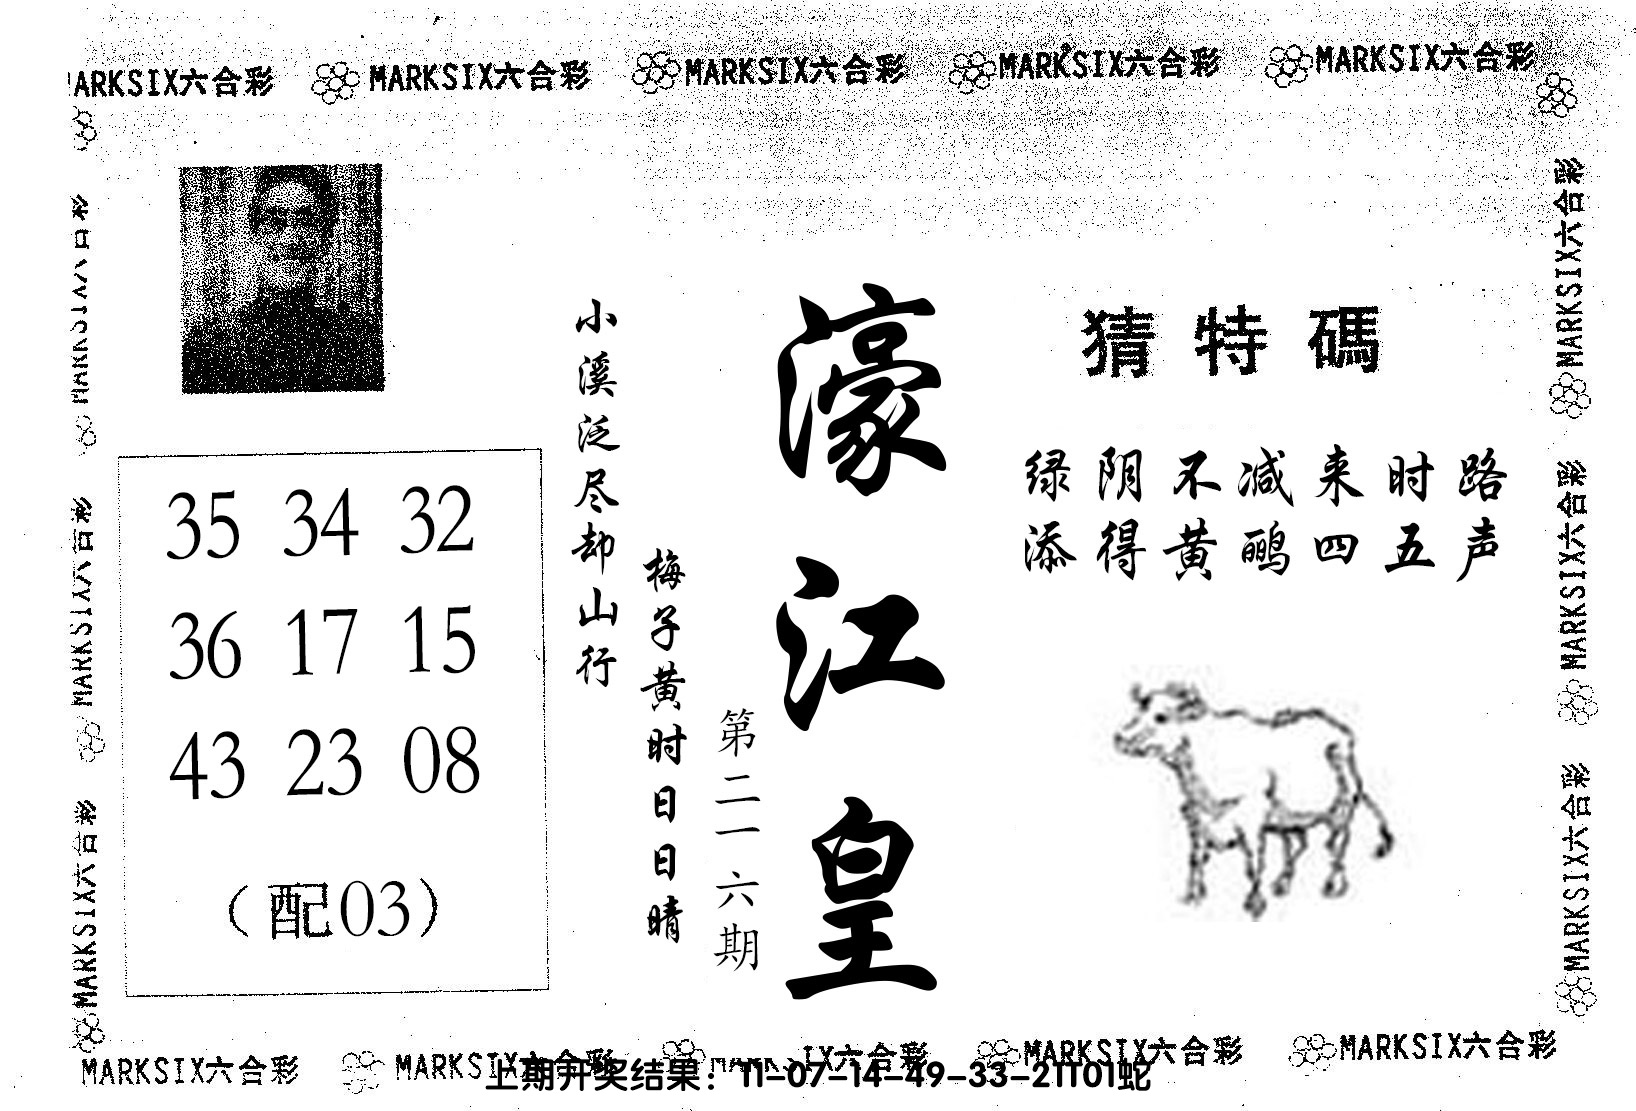 MARKSIX六合彩 MARKSIX六合彩 MARKSIX六合彩 MARKSIX六合彩 MARKSIX六合彩
MARKSIX六合彩
MARKSIX六合彩
MARKSIX六合彩
濠江皇
第二一六期
梅子黄时日日晴
小溪泛尽却山行
猜特碼
绿阴不减来时路
添得黄鹂四五声
35 34 32
36 17 15
43 23 08
（配03）
MARKSIX六合彩
MARKSIX六合彩
MARKSIX六合彩
MARKSIX六合彩 MARKSIX六合彩 IX六合彩 MARKSIX六合彩 MARKSIX六合彩
上期开奖结果：11-07-14-49-33-21T01蛇